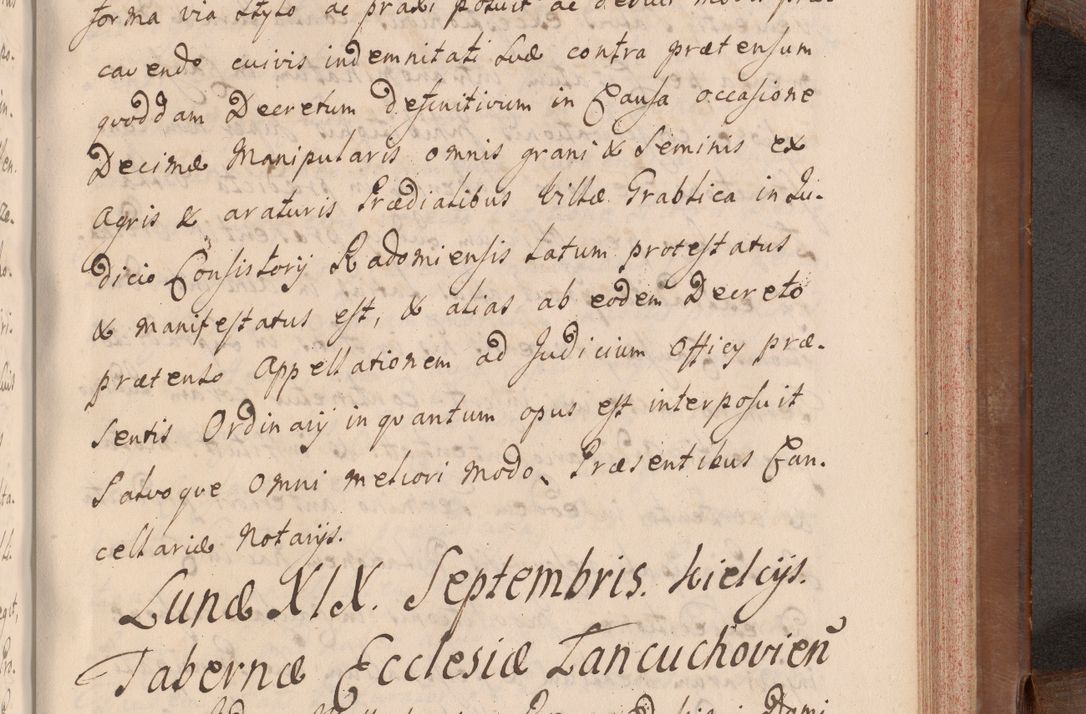 forma via stylo ac praxi potuit ac debuit modo præ-
cavendo cuivis indemnitati suæ contra prætensum
qvoddam Decretum definitivum in Causa occasione
Decimæ Manipularis omnis grani & Seminis ex
Agris & araturis Prædialibus Villæ Grablica in Ju-
dicio Consistorij Radomiensis latum protestatus
& manifestatus est, & alias ab eodem Decreto
prætenso Appellationem ad Judicium Officij præ-
sentis Ordinarij inqvantum opus est interposuit
Salvoqve omni meliori modo. Præsentibus Can-
cellariæ Notarijs.
Lunæ XIX. Septembris. Kielcijs.
Tabernæ Ecclesiæ Lancuchovien